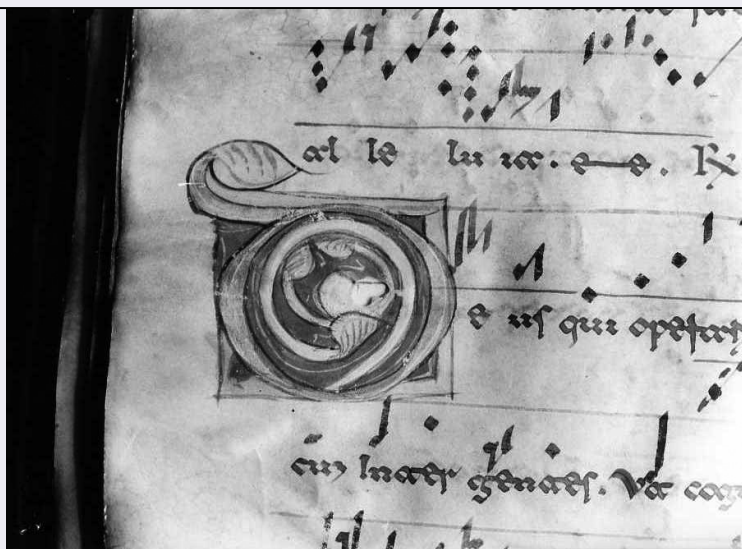 al le lu ia. e—e. ℞
De us qui operat
inter gentes. Et cog